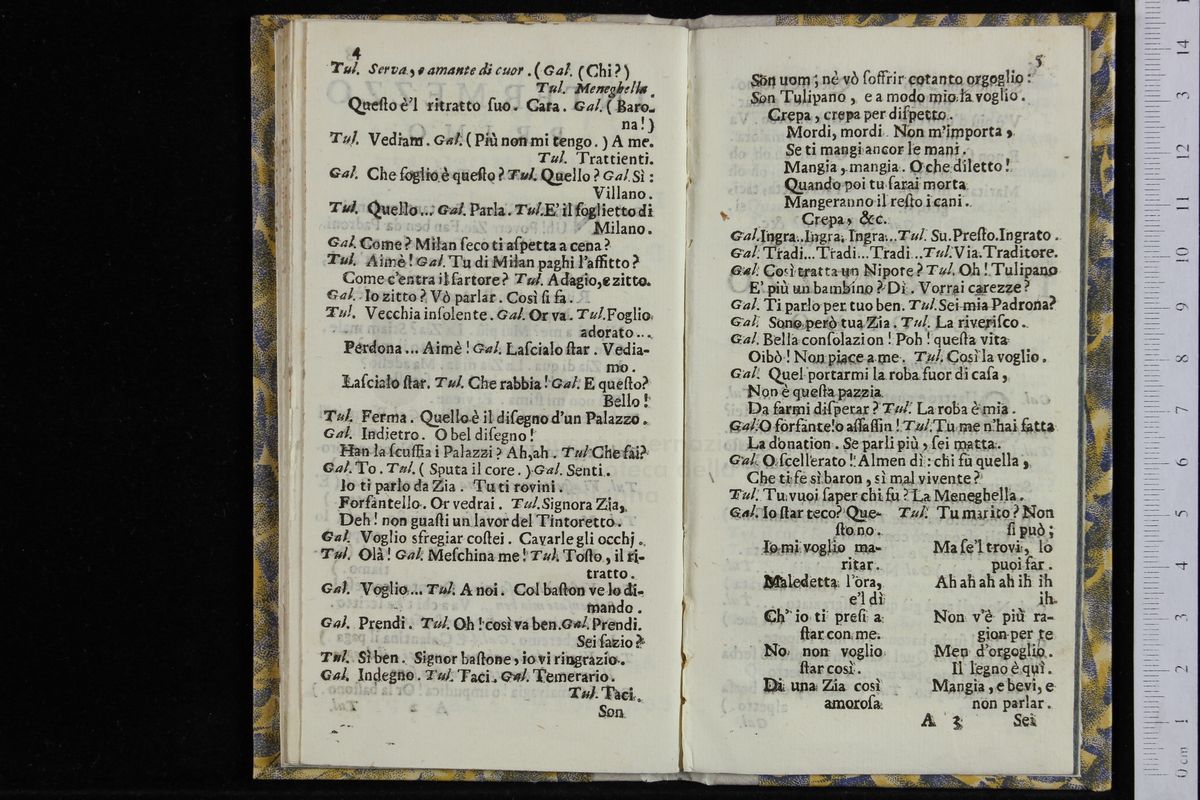 4
Tul. Serva, e amante di cuor. (Gal. (Chi?)
Tul. Meneghella.
Queſto è'l ritratto ſuo. Cara. Gal. (Baro-
na!)
Tul. Vediam. Gal. (Più non mi tengo.) A me.
Tul. Trattienti.
Gal. Che foglio è queſto? Tul. Quello? Gal. Sì:
Villano.
Tul. Quello... Gal. Parla. Tul. E' il foglietto di
Milano.
Gal. Come? Milan ſeco ti aſpetta a cena?
Tul. Aimè! Gal. Tu di Milan paghi l'affitto?
Come c'entra il ſartore? Tul. Adagio, e zitto.
Gal. Io zitto? Vò parlar. Così ſi fa.
Tul. Vecchia inſolente. Gal. Or va. Tul. Foglio
adorato...
Perdona... Aimè! Gal. Laſcialo ſtar. Vedia-
mo.
Laſcialo ſtar. Tul. Che rabbia! Gal. E queſto?
Bello!
Tul. Ferma. Quello è il diſegno d'un Palazzo.
Gal. Indietro. O bel diſegno!
Han la ſcuffia i Palazzi? Ah, ah. Tul. Che fai?
Gal. To. Tul. (Sputa il core.) Gal. Senti.
Io ti parlo da Zia. Tu ti rovini.
Forfantello. Or vedrai. Tul. Signora Zia,
Deh! non guaſti un lavor del Tintoretto.
Gal. Voglio sfregiar coſtei. Cavarle gli occhj.
Tul. Olà! Gal. Meſchina me! Tul. Toſto, il ri-
tratto.
Gal. Voglio... Tul. A noi. Col baſton ve lo di-
mando.
Gal. Prendi. Tul. Oh! così va ben. Gal. Prendi.
Sei ſazio?
Tul. Sì ben. Signor baſtone, io vi ringrazio.
Gal. Indegno. Tul. Taci. Gal. Temerario.
Tul. Taci.
Son
5
Son uom; nè vò ſoffrir cotanto orgoglio:
Son Tulipano, e a modo mio la voglio.
Crepa, crepa per diſpetto.
Mordi, mordi. Non m'importa,
Se ti mangi ancor le mani.
Mangia, mangia. O che diletto!
Quando poi tu ſarai morta
Mangeranno il reſto i cani.
Crepa, &c.
Gal. Ingra... Ingra. Ingra... Tul. Su. Preſto. Ingrato.
Gal. Tradi... Tradi... Tradi... Tul. Via. Traditore.
Gal. Così tratta un Nipote? Tul. Oh! Tulipano
E' più un bambino? Dì. Vorrai carezze?
Gal. Ti parlo per tuo ben. Tul. Sei mia Padrona?
Gal. Sono però tua Zia. Tul. La riveriſco.
Gal. Bella conſolazion! Poh! queſta vita
Oibò! Non piace a me. Tul. Così la voglio.
Gal. Quel portarmi la roba fuor di caſa,
Non è queſta pazzia
Da farmi diſperar? Tul. La roba è mia.
Gal. O forfante! o aſſaſſin! Tul. Tu me n'hai fatta
La donation. Se parli più, ſei matta.
Gal. O ſcellerato! Almen dì: chi fù quella,
Che ti fè sì baron, sì mal vivente?
Tul. Tu vuoi ſaper chi fu? La Meneghella.
Gal. Io ſtar teco? Que-
ſto no.
Io mi voglio ma-
ritar.
Maledetta l'ora,
e'l dì
Ch' io ti preſi a
ſtar con me.
No non voglio
ſtar così.
Di una Zia così
amoroſa
Tul. Tu marito? Non
ſi può;
Ma ſe'l trovi, lo
puoi far.
Ah ah ah ah ih ih
ih.
Non v'è più ra-
gion per te
Men d'orgoglio.
Il legno è quì.
Mangia, e bevi, e
non parlar.
A 3 Sei
0 cm 1 2 3
10 11 12 13 14